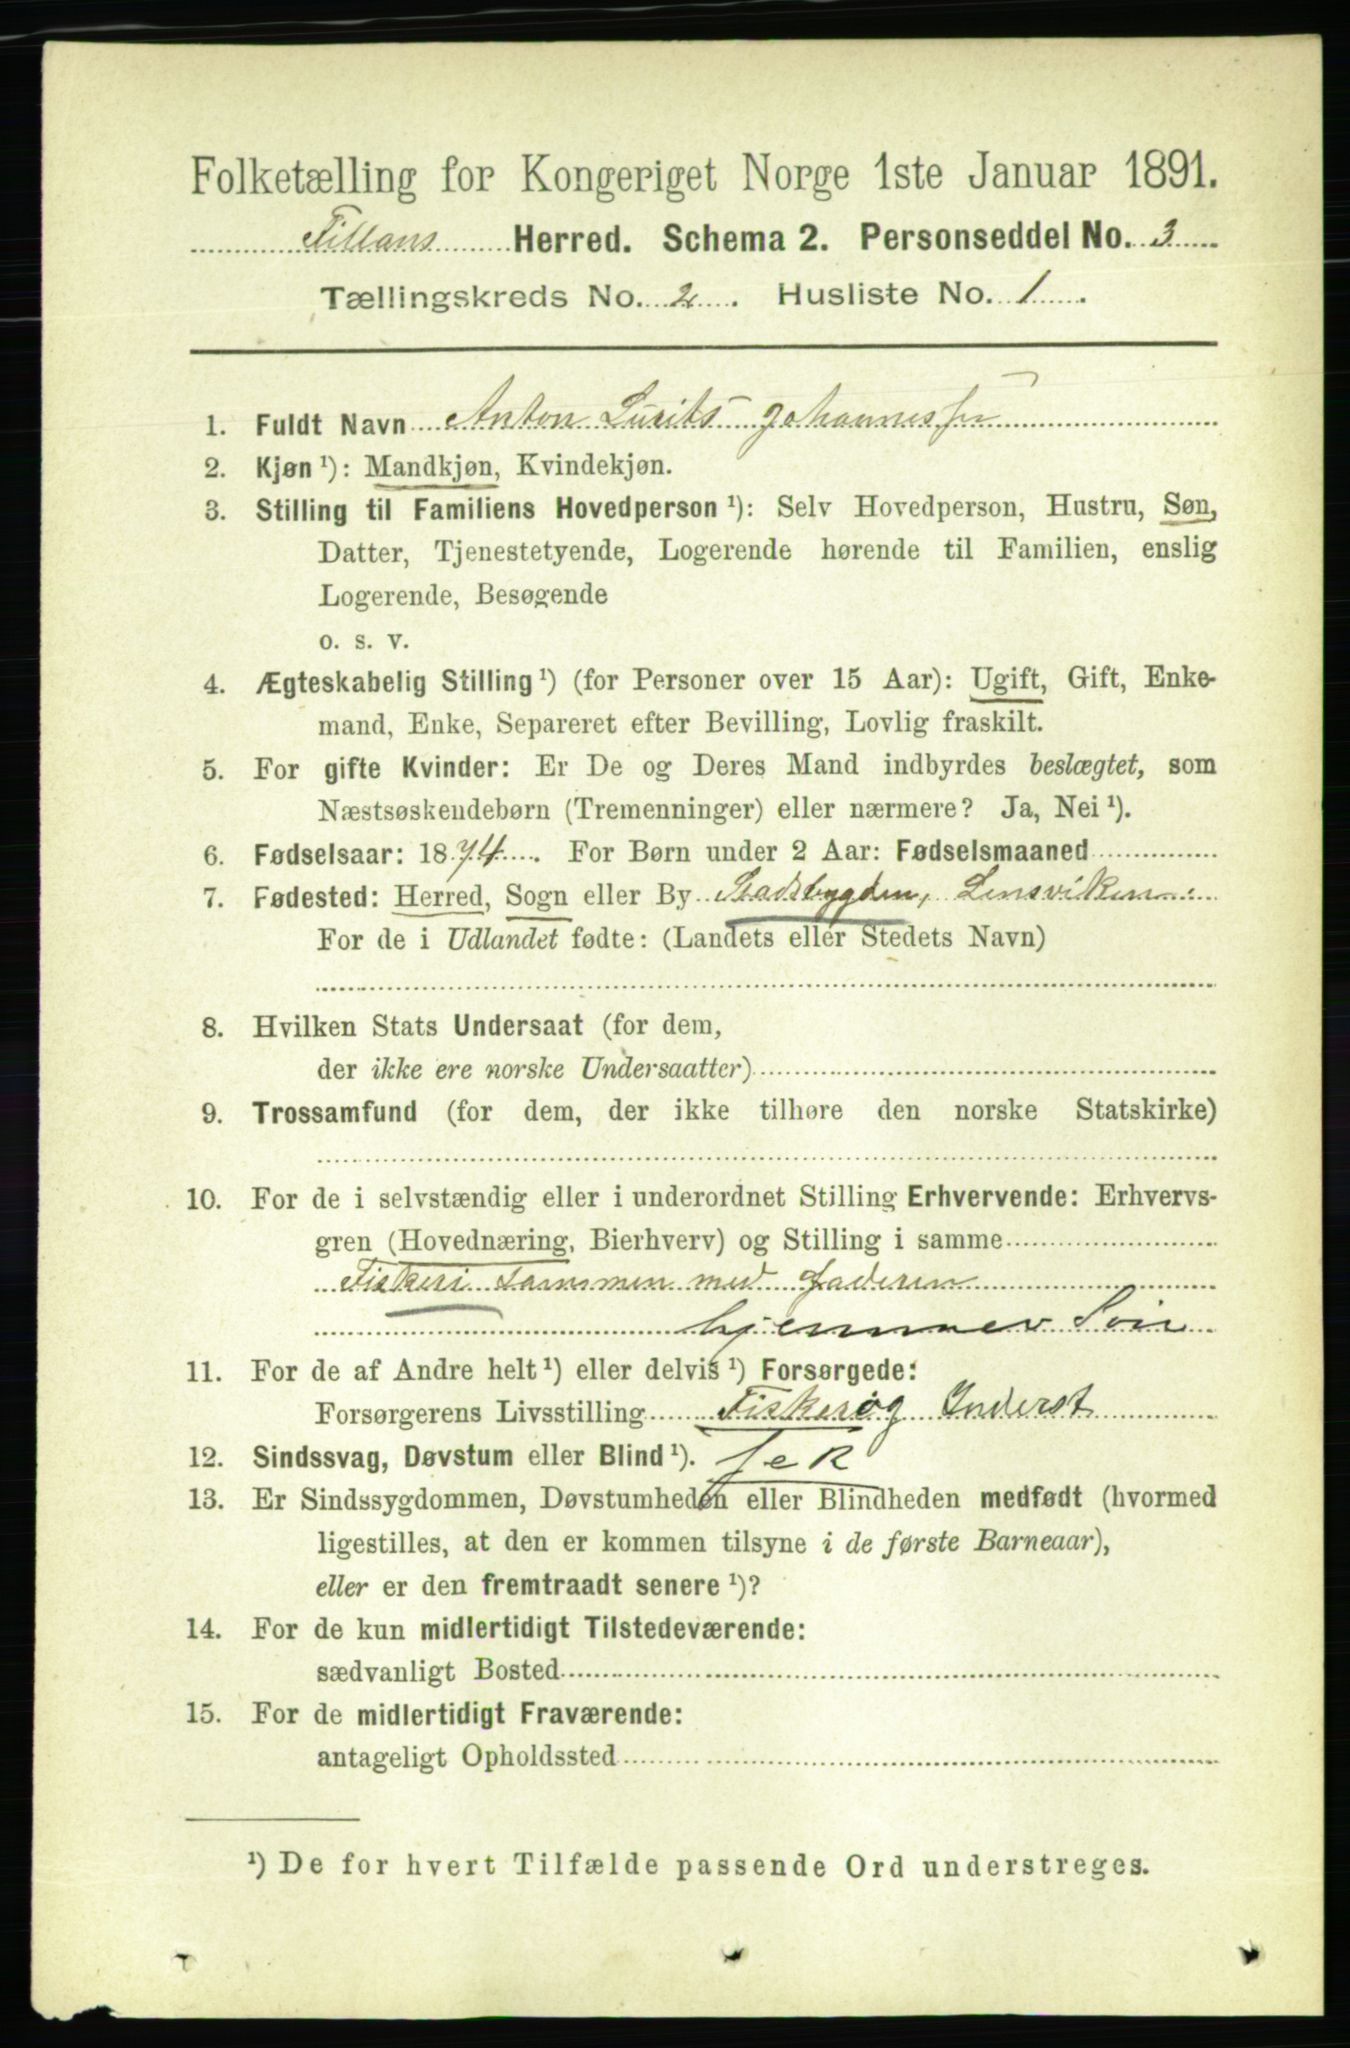 Folketælling for Kongeriget Norge 1ste Januar 1891.
Fillans Herred. Schema 2. Personseddel No. 3
Tællingskreds No. 2. Husliste No. 1.
1. Fuldt Navn Anton Lurits Johannessen
2. Kjøn ¹): Mandkjøn, Kvindekjøn.
3. Stilling til Familiens Hovedperson ¹): Selv Hovedperson, Hustru, Søn,
Datter, Tjenestetyende, Logerende hørende til Familien, enslig
Logerende, Besøgende
o. s. v.
4. Ægteskabelig Stilling ¹) (for Personer over 15 Aar): Ugift, Gift, Enke-
mand, Enke, Separeret efter Bevilling, Lovlig fraskilt.
5. For gifte Kvinder: Er De og Deres Mand indbyrdes beslægtet, som
Næstsøskendebørn (Tremenninger) eller nærmere? Ja, Nei ¹).
6. Fødselsaar: 1874. For Børn under 2 Aar: Fødselsmaaned
7. Fødested: Herred, Sogn eller By Stadsbygden, Lensviken
For de i Udlandet fødte: (Landets eller Stedets Navn)
8. Hvilken Stats Undersaat (for dem,
der ikke ere norske Undersaatter)
9. Trossamfund (for dem, der ikke tilhøre den norske Statskirke)
10. For de i selvstændig eller i underordnet Stilling Erhvervende: Erhvervs-
gren (Hovednæring, Bierhverv) og Stilling i samme
Fiskeri sammen med faderen
hjemmev Søn
11. For de af Andre helt ¹) eller delvis ¹) Forsørgede:
Forsørgerens Livsstilling Fisker og Inderst
12. Sindssvag, Døvstum eller Blind ¹).
13. Er Sindssygdommen, Døvstumheden eller Blindheden medfødt (hvormed
ligestilles, at den er kommen tilsyne i de første Barneaar),
eller er den fremtraadt senere ¹)?
14. For de kun midlertidigt Tilstedeværende:
sædvanligt Bosted
15. For de midlertidigt Fraværende:
antageligt Opholdssted
¹) De for hvert Tilfælde passende Ord understreges.